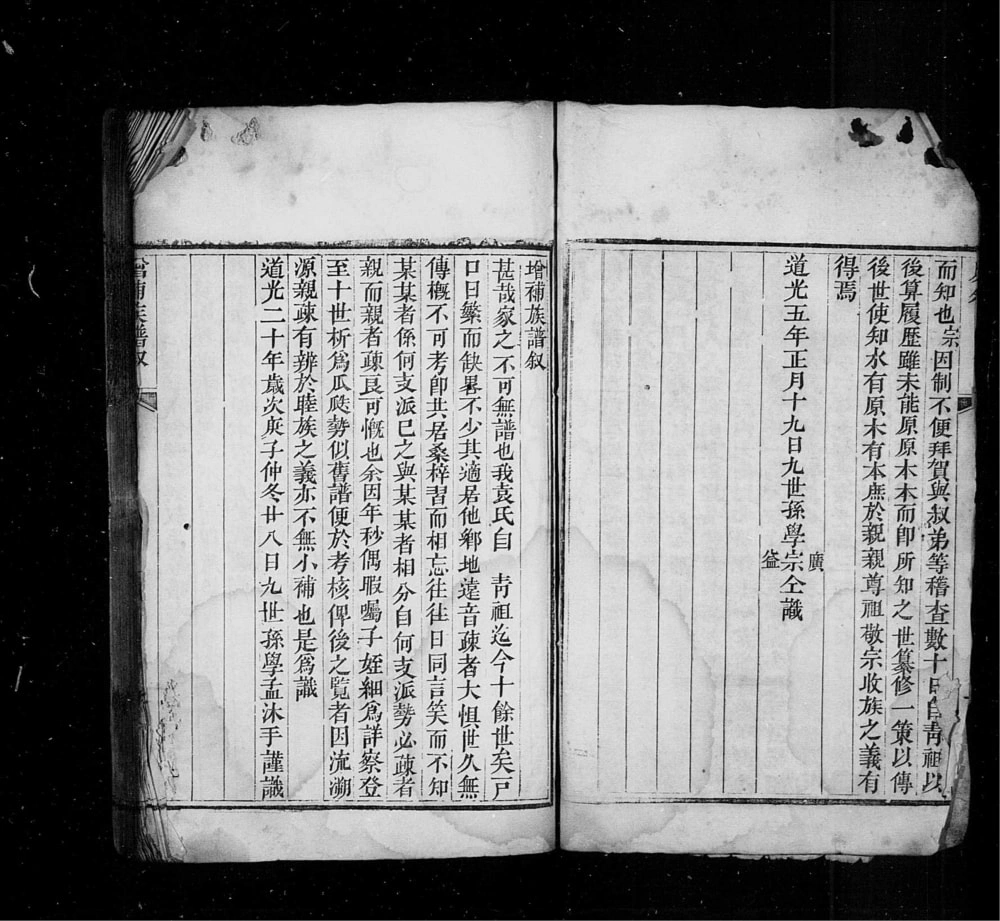 而知也宗因制不便拜賀與叔弟等稽查數十日自靑祖以
後算履歷雖未能原原木木而卽所知之世纂修一策以傳
後世使知水有原木有本庶於親親尊祖敬宗收族之義有
得焉
道光五年正月十九日九世孫學宗仝識
廣
益
增補族譜叙
甚哉家之不可無譜也我袁氏自 靑祖迄今十餘世矣戸
口日繁而缺畧不少其適居他鄉地遠音疎者大惧世久無
傳槪不可考卽共居桑梓習而相忘往往日同言笑而不知
某某者係何支派已之與某某者相分自何支派勢必疎者
親而親者疎良可慨也余因年秒偶暇囑子姪細爲詳察登
至十世析爲瓜瓞勢似舊譜便於考核俾後之覽者因流溯
源親疎有辨於睦族之義亦不無小補也是爲識
道光二十年歲次庚子仲冬廿八日九世孫學孟沐手謹識
增補族譜叙